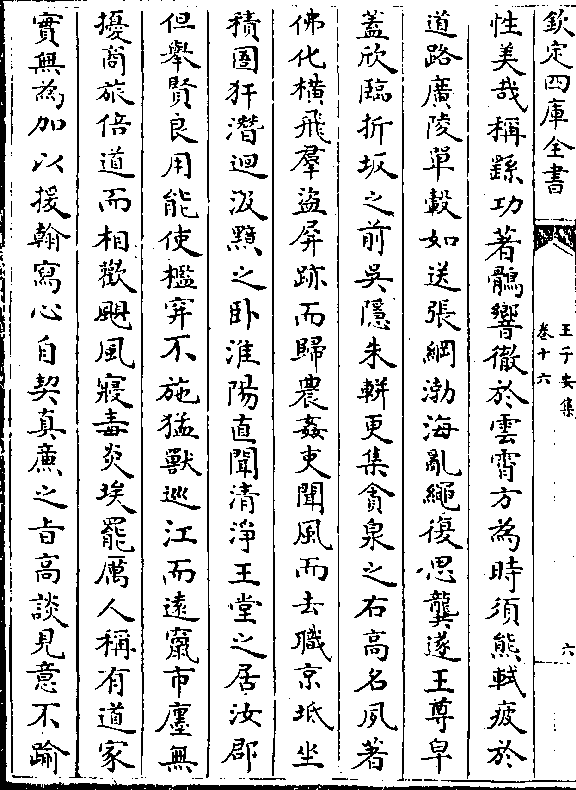 欽定四庫全書
王子安集
卷十六
六
性美哉稱繇功著鶺響徹於雲霄方為時須熊軾疲於
道路廣陵單轂如送張綱渤海亂繩復思龔遂王尊皁
蓋欣臨折坂之前吳隱朱軿更集貪泉之右高名夙著
佛化橫飛羣盜屏跡而歸農姦吏聞風而去職京坻坐
積圄犴潛迴汲黯之卧淮陽直聞清淨王堂之居汝郡
但舉賢良用能使檻穽不施猛獸巡江而遠竄市廛無
擾商旅倍道而相歡颶風寢毒炎埃罷厲人稱有道家
實無為加以援翰寫心自契真廉之旨高談見意不踰